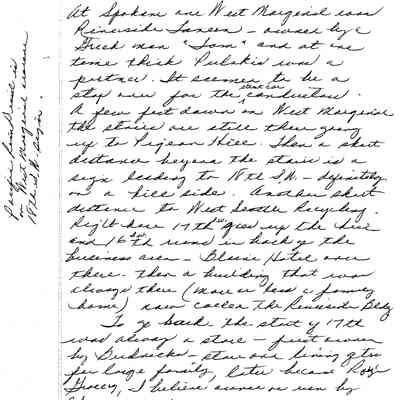 At Spokane and West Marginal was
Riverside Tavern - owned by a
Greek man "Tom" and at one
time think Pulakis was a
partner. It seemed to be a
stop over for the street car conductors.
A few feet down on West Marginal
the stairs are still there going
up to Pigeon Hill. Then a short
distance beyond the stairs is a
sign leading to 17th S.W. - definitely
on a hill side. Another short
distance to West Seattle Recycling.
Right here 17th goes up the hill
and 16th runs in back of the
business area - Hotel over
there. Then a building that was
always there (more or less a
home) now called The Riverside Bldg
To go back the start of 17th
was always a store - first owned
by - store and living qtrs
for large family, later became Roy
Gracey, I believe owned or run by
Pacific is
on West Marginal where
17th S.W. begins.